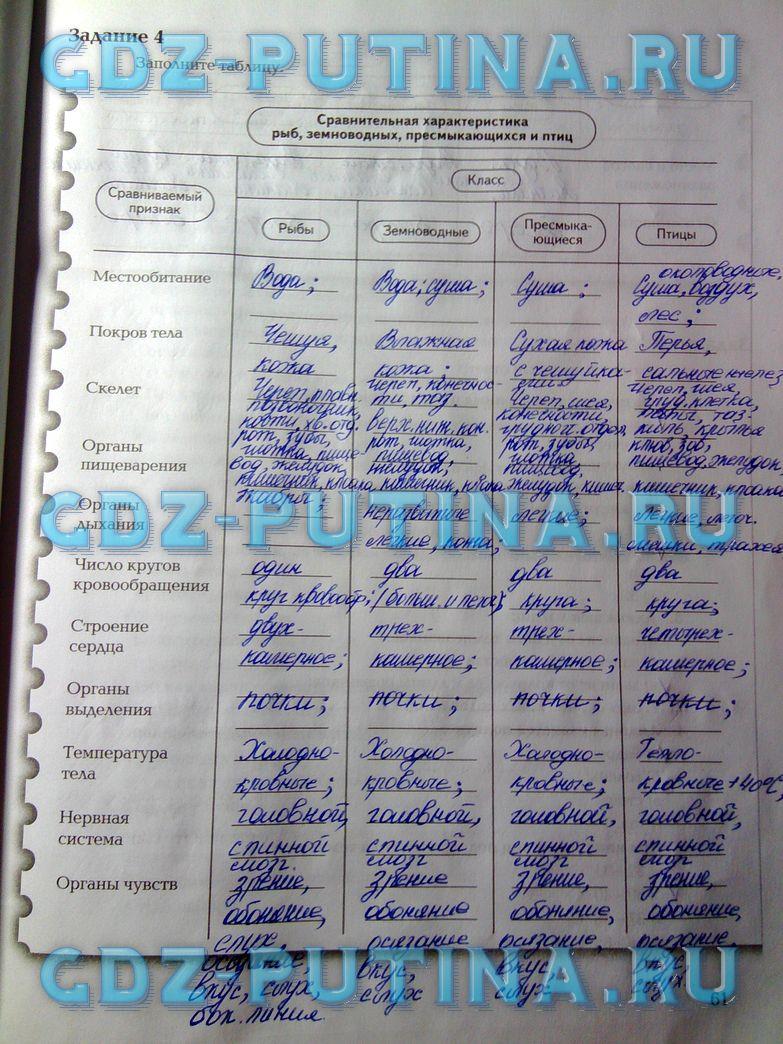 Задание 4
GDZ-PUTINA.RU
Заполните таблицу.
Сравнительная характеристика
рыб, земноводных, пресмыкающихся и птиц
Класс
Сравниваемый
признак
Рыбы
Земноводные
Пресмыка-
ющиеся
Птицы
Местообитание
Вода;
Вода; суша;
Суша;
околоводные,
Суша, воздух,
лес;
Покров тела
Чешуя,
кожа
Влажная
кожа;
Сухая кожа
с чешуйка-
Перья,
сальные желез
Скелет
Череп, плавн.
позвоночник,
кости, хв. отд.
Череп, конечнос-
ти, таз.
верх. ниж. кон.
Череп, шея,
конечности,
грудной отдел
Череп, шея,
груд. клетка,
таз.
крылья
Органы
пищеварения
рот, зубы,
глотка, пище-
вод, желудок,
кишечник, клоака
рот, глотка,
пищевод
желудок,
кишечник, клоака
рот, зубы,
глотка
пищевод
желудок, кишеч.
клюв, зоб,
пищевод, желудок,
кишечник, клоака
Органы
дыхания
жабры;
неразвитые
легкие, кожа;
легкие;
легкие, легоч.
мешки, трахея
GDZ-PUTINA.RU
Число кругов
кровообращения
один
круг кровообр.;
два
(больш. и легоч.);
два
круга;
два
круга;
Строение
сердца
двух-
камерное;
трех-
камерное;
трех-
камерное;
четырех-
камерное;
Органы
выделения
почки;
почки;
почки;
почки;
Температура
тела
Холодно-
кровные;
Холодно-
кровные;
Холодно-
кровные;
Тепло-
кровные +40°С;
Нервная
система
головной,
спинной
мозг.
головной,
спинной
мозг
головной,
спинной
мозг
головной,
спинной
мозг
Органы чувств
зрение,
обоняние,
слух,
осязание,
вкус, слух,
бок. линия.
зрение
обоняние
осязание
вкус,
слух
зрение,
обоняние,
осязание,
вкус,
слух
зрение,
обоняние,
осязание,
вкус,
слух.
GDZ-PUTINA.RU
61